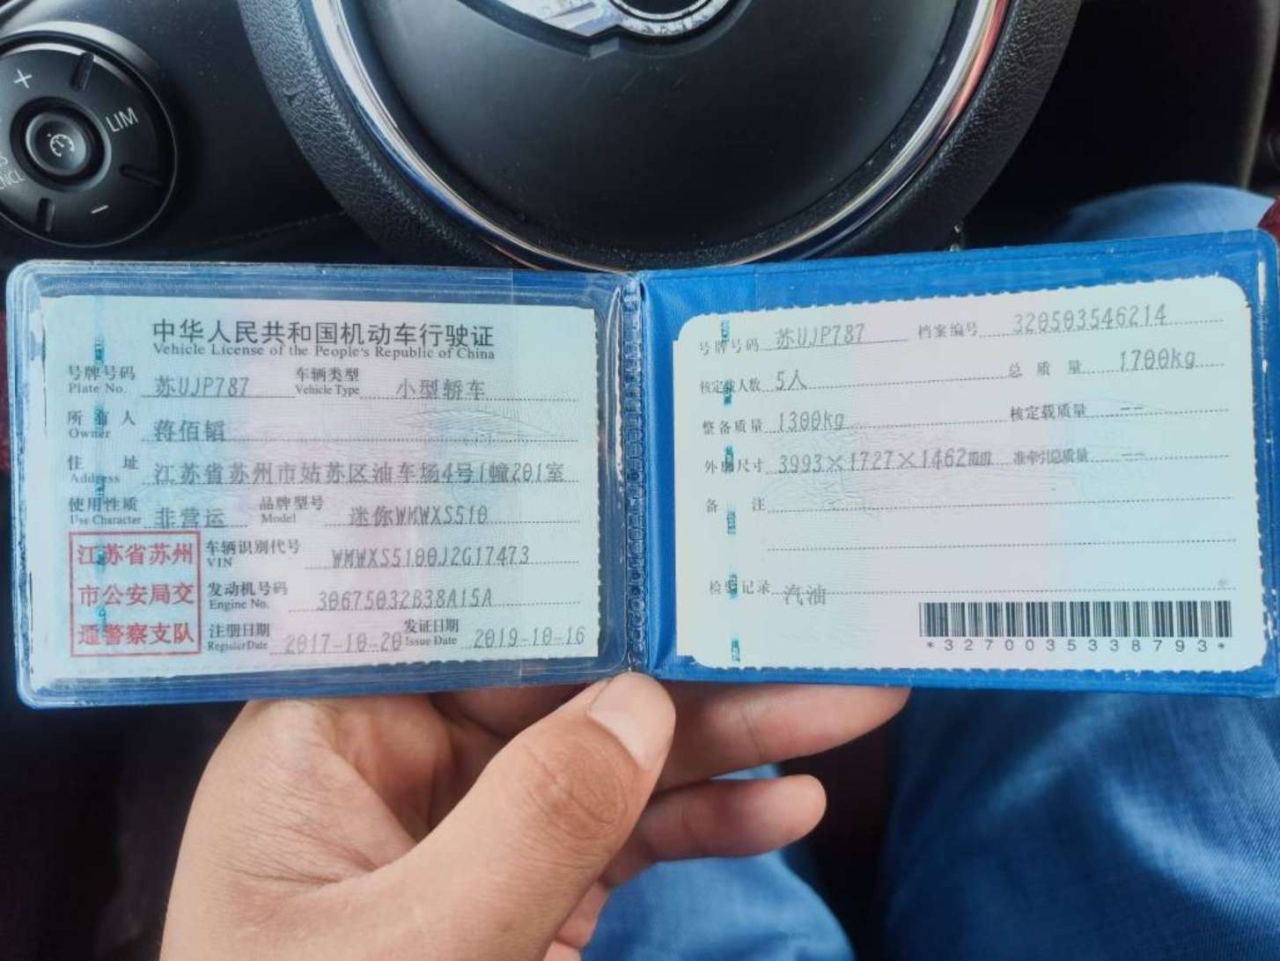 LIM
中华人民共和国机动车行驶证
Vehicle License of the People's Republic of China
号牌号码 Plate No. 苏UJP787 车辆类型 Vehicle Type 小型轿车
所有人 Owner 蒋佰韬
住址 Address 江苏省苏州市姑苏区油车场4号1幢201室
使用性质 Use Character 非营运 品牌型号 Model 迷你WMWXS510
江苏省苏州
市公安局交
通警察支队
车辆识别代号 VIN WMWXS5100J2G17473
发动机号码 Engine No. 30675032B38A15A
注册日期 Register Date 2017-10-20 发证日期 Issue Date 2019-10-16
号牌号码 苏UJP787 档案编号 320503546214
核定载人数 5人 总质量 1700kg
整备质量 1300kg 核定载质量 --
外廓尺寸 3993×1727×1462mm 准牵引总质量 --
备注
检验记录 汽油
*3270035338793*